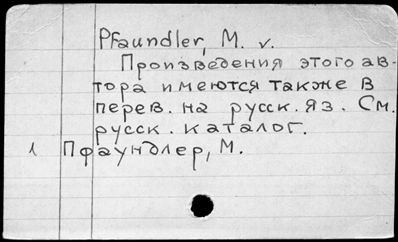 Pfaundler, M. v.
Произведения этого ав-
тора имеются также в
перев. на русск. яз. См.
русск. каталог.
1 Пфаундлер, М.